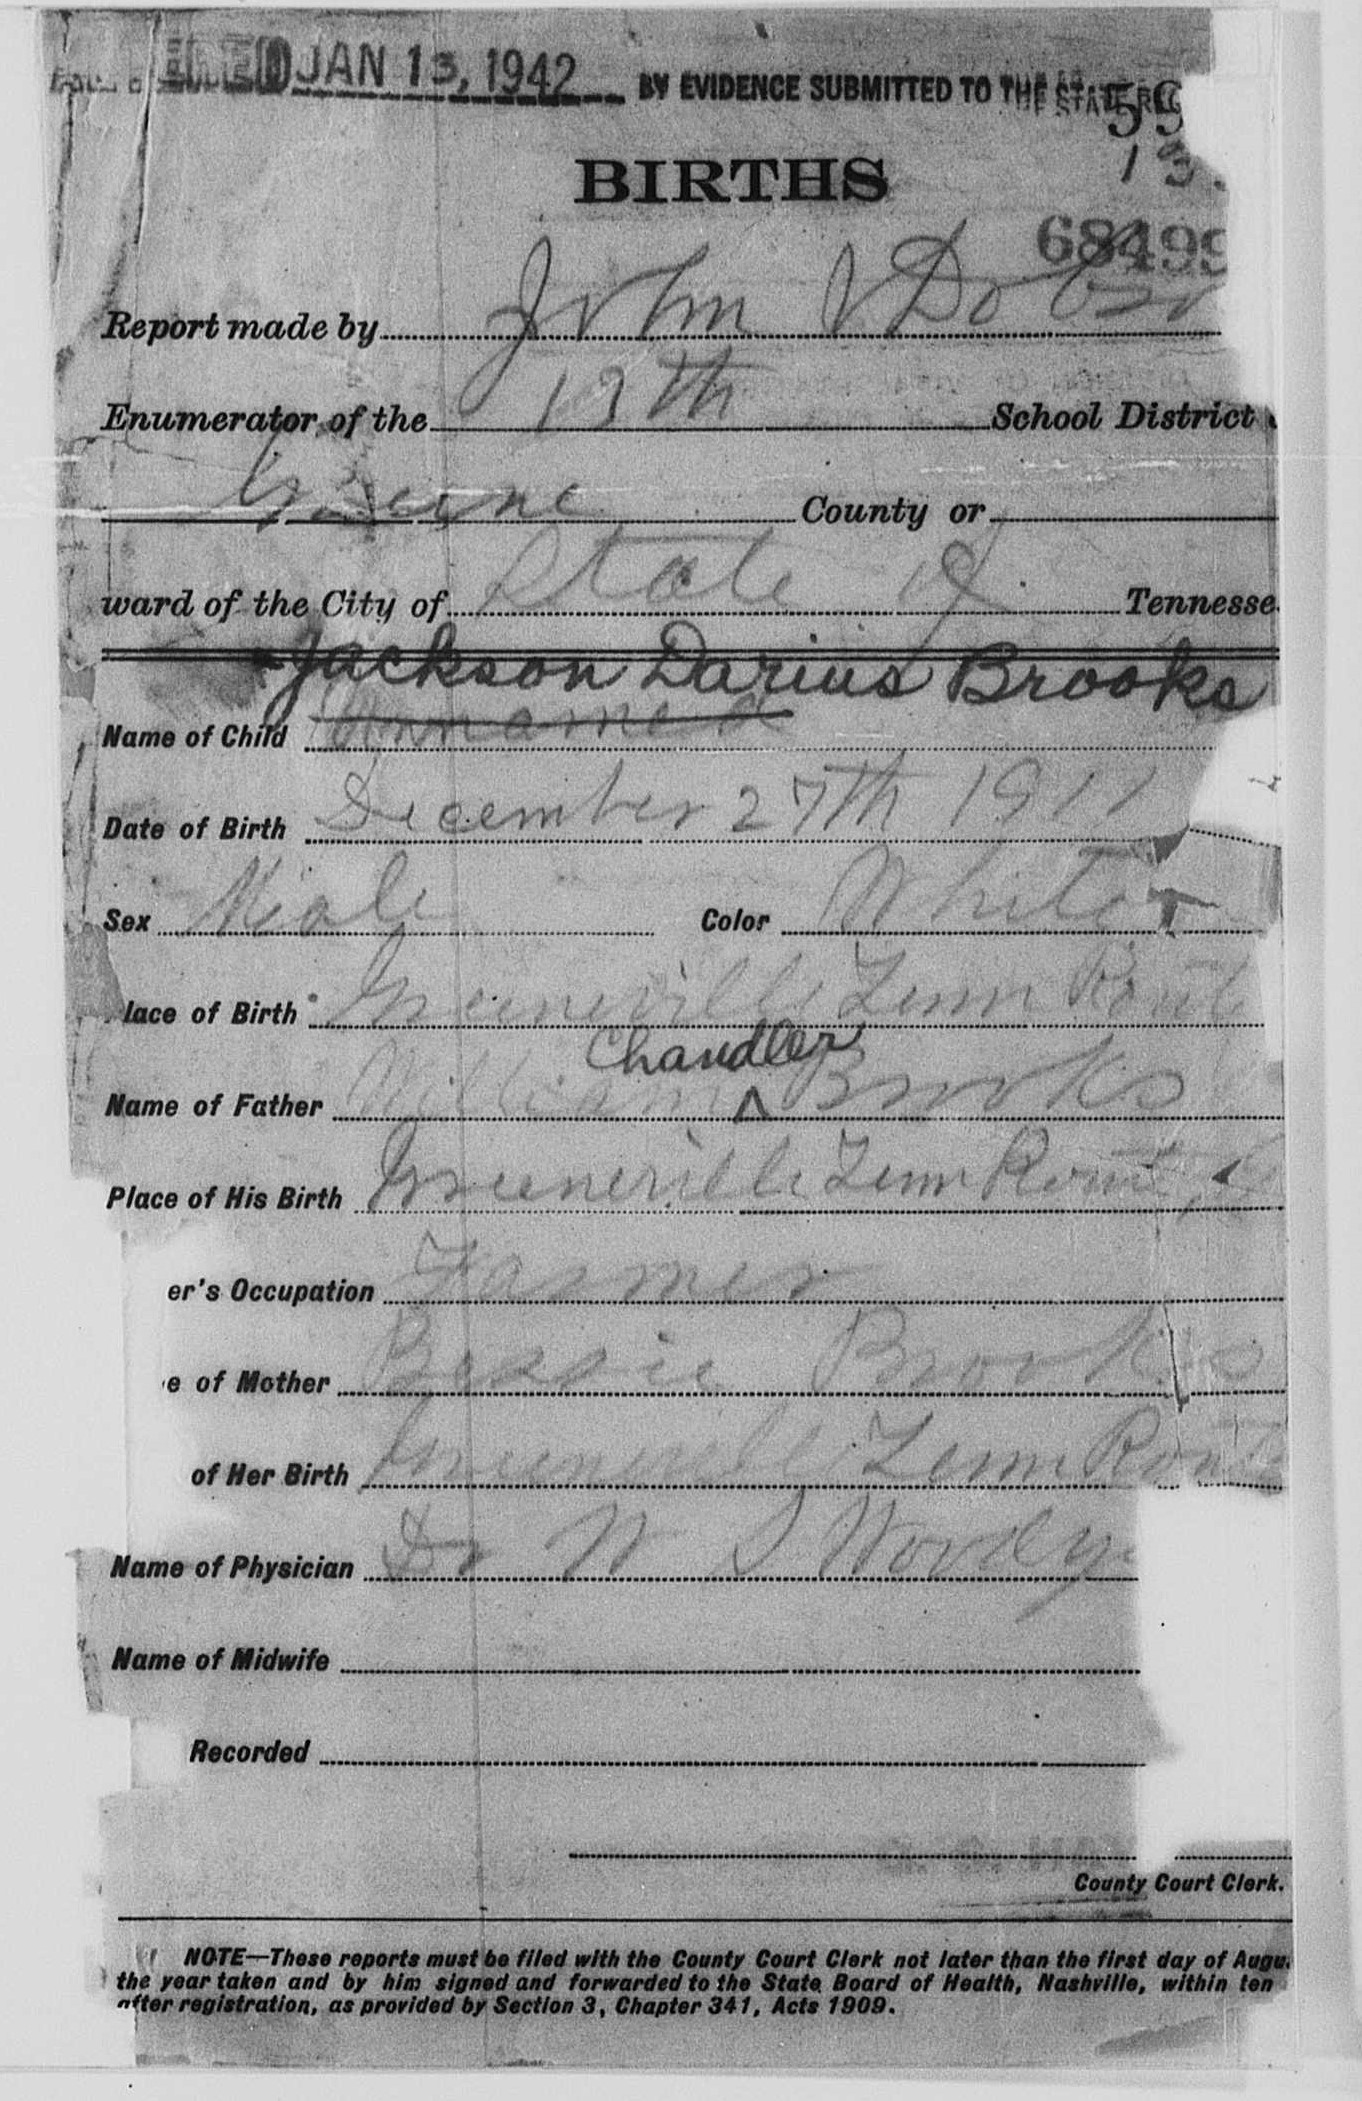 JAN 13, 1942 BY EVIDENCE SUBMITTED TO THE STATE
59
13
BIRTHS
68499
Report made by John
Enumerator of the 13th School District
Greene County or
ward of the City of State of Tennesse
Jackson Darius Brooks
Name of Child Unnamed
Date of Birth December 27th 1911
Sex Male Color White
lace of Birth Greeneville Tenn Route
Chandler
Name of Father William ^ Brooks
Place of His Birth Greeneville Tenn Route
er's Occupation Farmer
e of Mother Bessie Brooks
of Her Birth Greeneville Tenn Route
Name of Physician Dr W S Woodyo
Name of Midwife
Recorded
County Court Clerk.
NOTE—These reports must be filed with the County Court Clerk not later than the first day of Augu
the year taken and by him signed and forwarded to the State Board of Health, Nashville, within ten
after registration, as provided by Section 3, Chapter 341, Acts 1909.